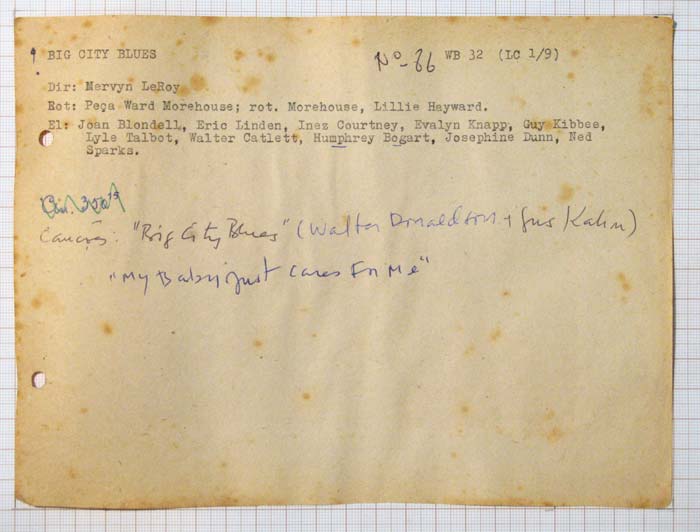 BIG CITY BLUES Nº-86 WB 32 (LC 1/9)
Dir: Mervyn LeRoy
Rot: Peça Ward Morehouse; rot. Morehouse, Lillie Hayward.
El: Joan Blondell, Eric Linden, Inez Courtney, Evalyn Knapp, Guy Kibbee,
Lyle Talbot, Walter Catlett, Humphrey Bogart, Josephine Dunn, Ned
Sparks.
Canções: "Big City Blues" (Walter Donaldson + Gus Kahn)
"My Baby Just Cares For Me"